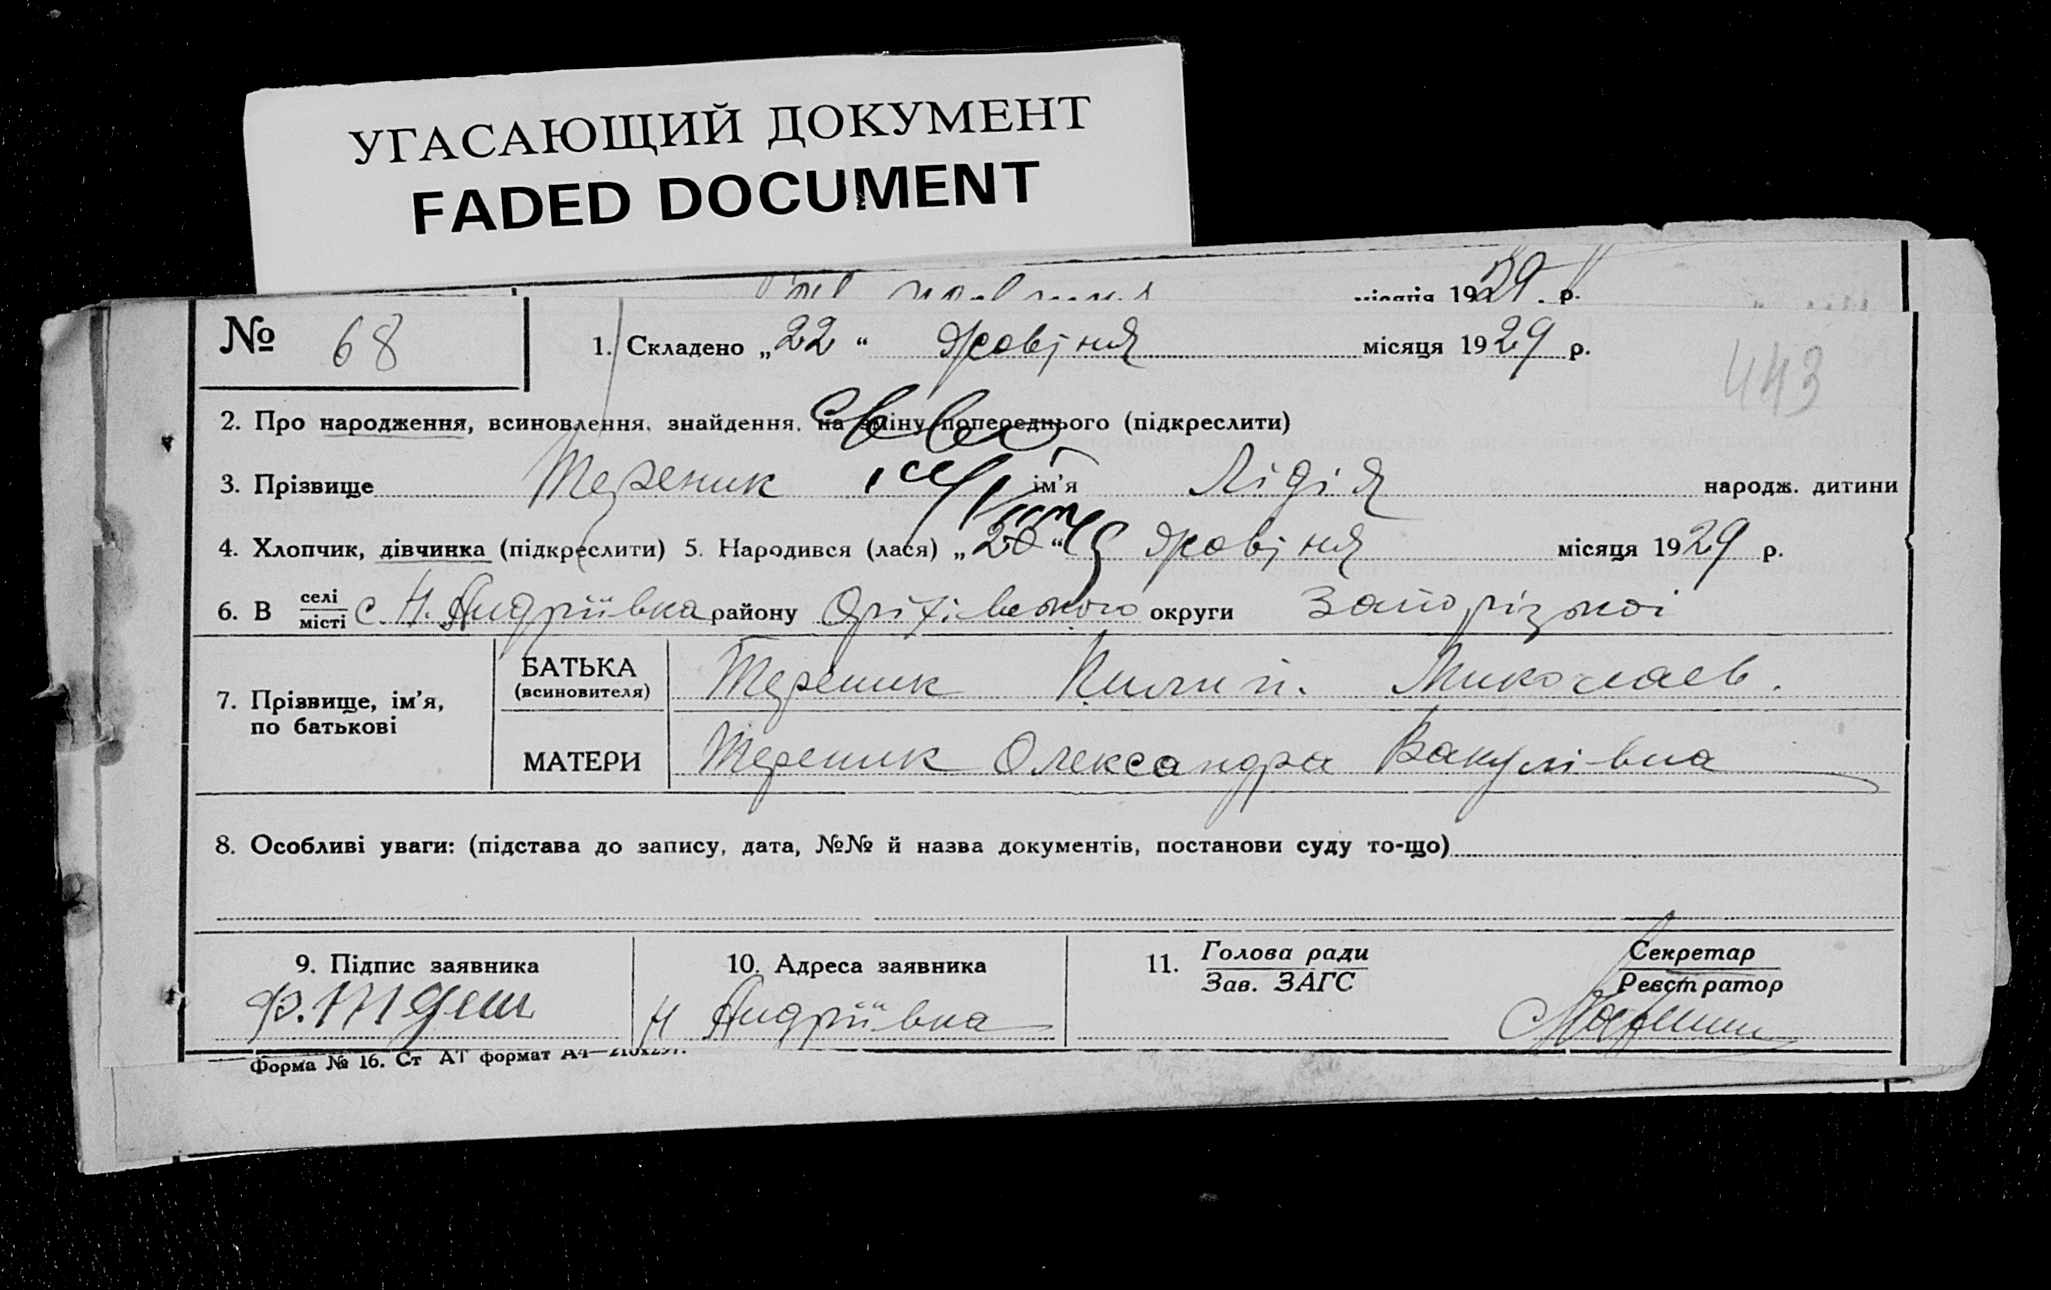 УГАСАЮЩИЙ ДОКУМЕНТ
FADED DOCUMENT
місяця 1929 р.
№ 68
1. Складено „22“ жовтня місяця 1929 р.
443
2. Про народження, всиновлення, знайдення, на зміну попереднього (підкреслити)
3. Прізвище Тереник ім'я Лідія народж. дитини
4. Хлопчик, дівчинка (підкреслити) 5. Народився (лася) „20“ жовтня місяця 1929 р.
6. В селі місті с. Н. Андріївка району Оріхівського округи Запорізької
7. Прізвище, ім'я, по батькові
БАТЬКА (всиновителя) Тереник Килип. Миколаєв.
МАТЕРИ Тереник Олександра Вакулівна
8. Особливі уваги: (підстава до запису, дата, №№ й назва документів, постанови суду то-що)
9. Підпис заявника
10. Адреса заявника
Н Андріївка
11. Голова ради
Зав. ЗАГС
Секретар
Реєстратор
Форма № 16. Ст АТ формат А4—210х297.